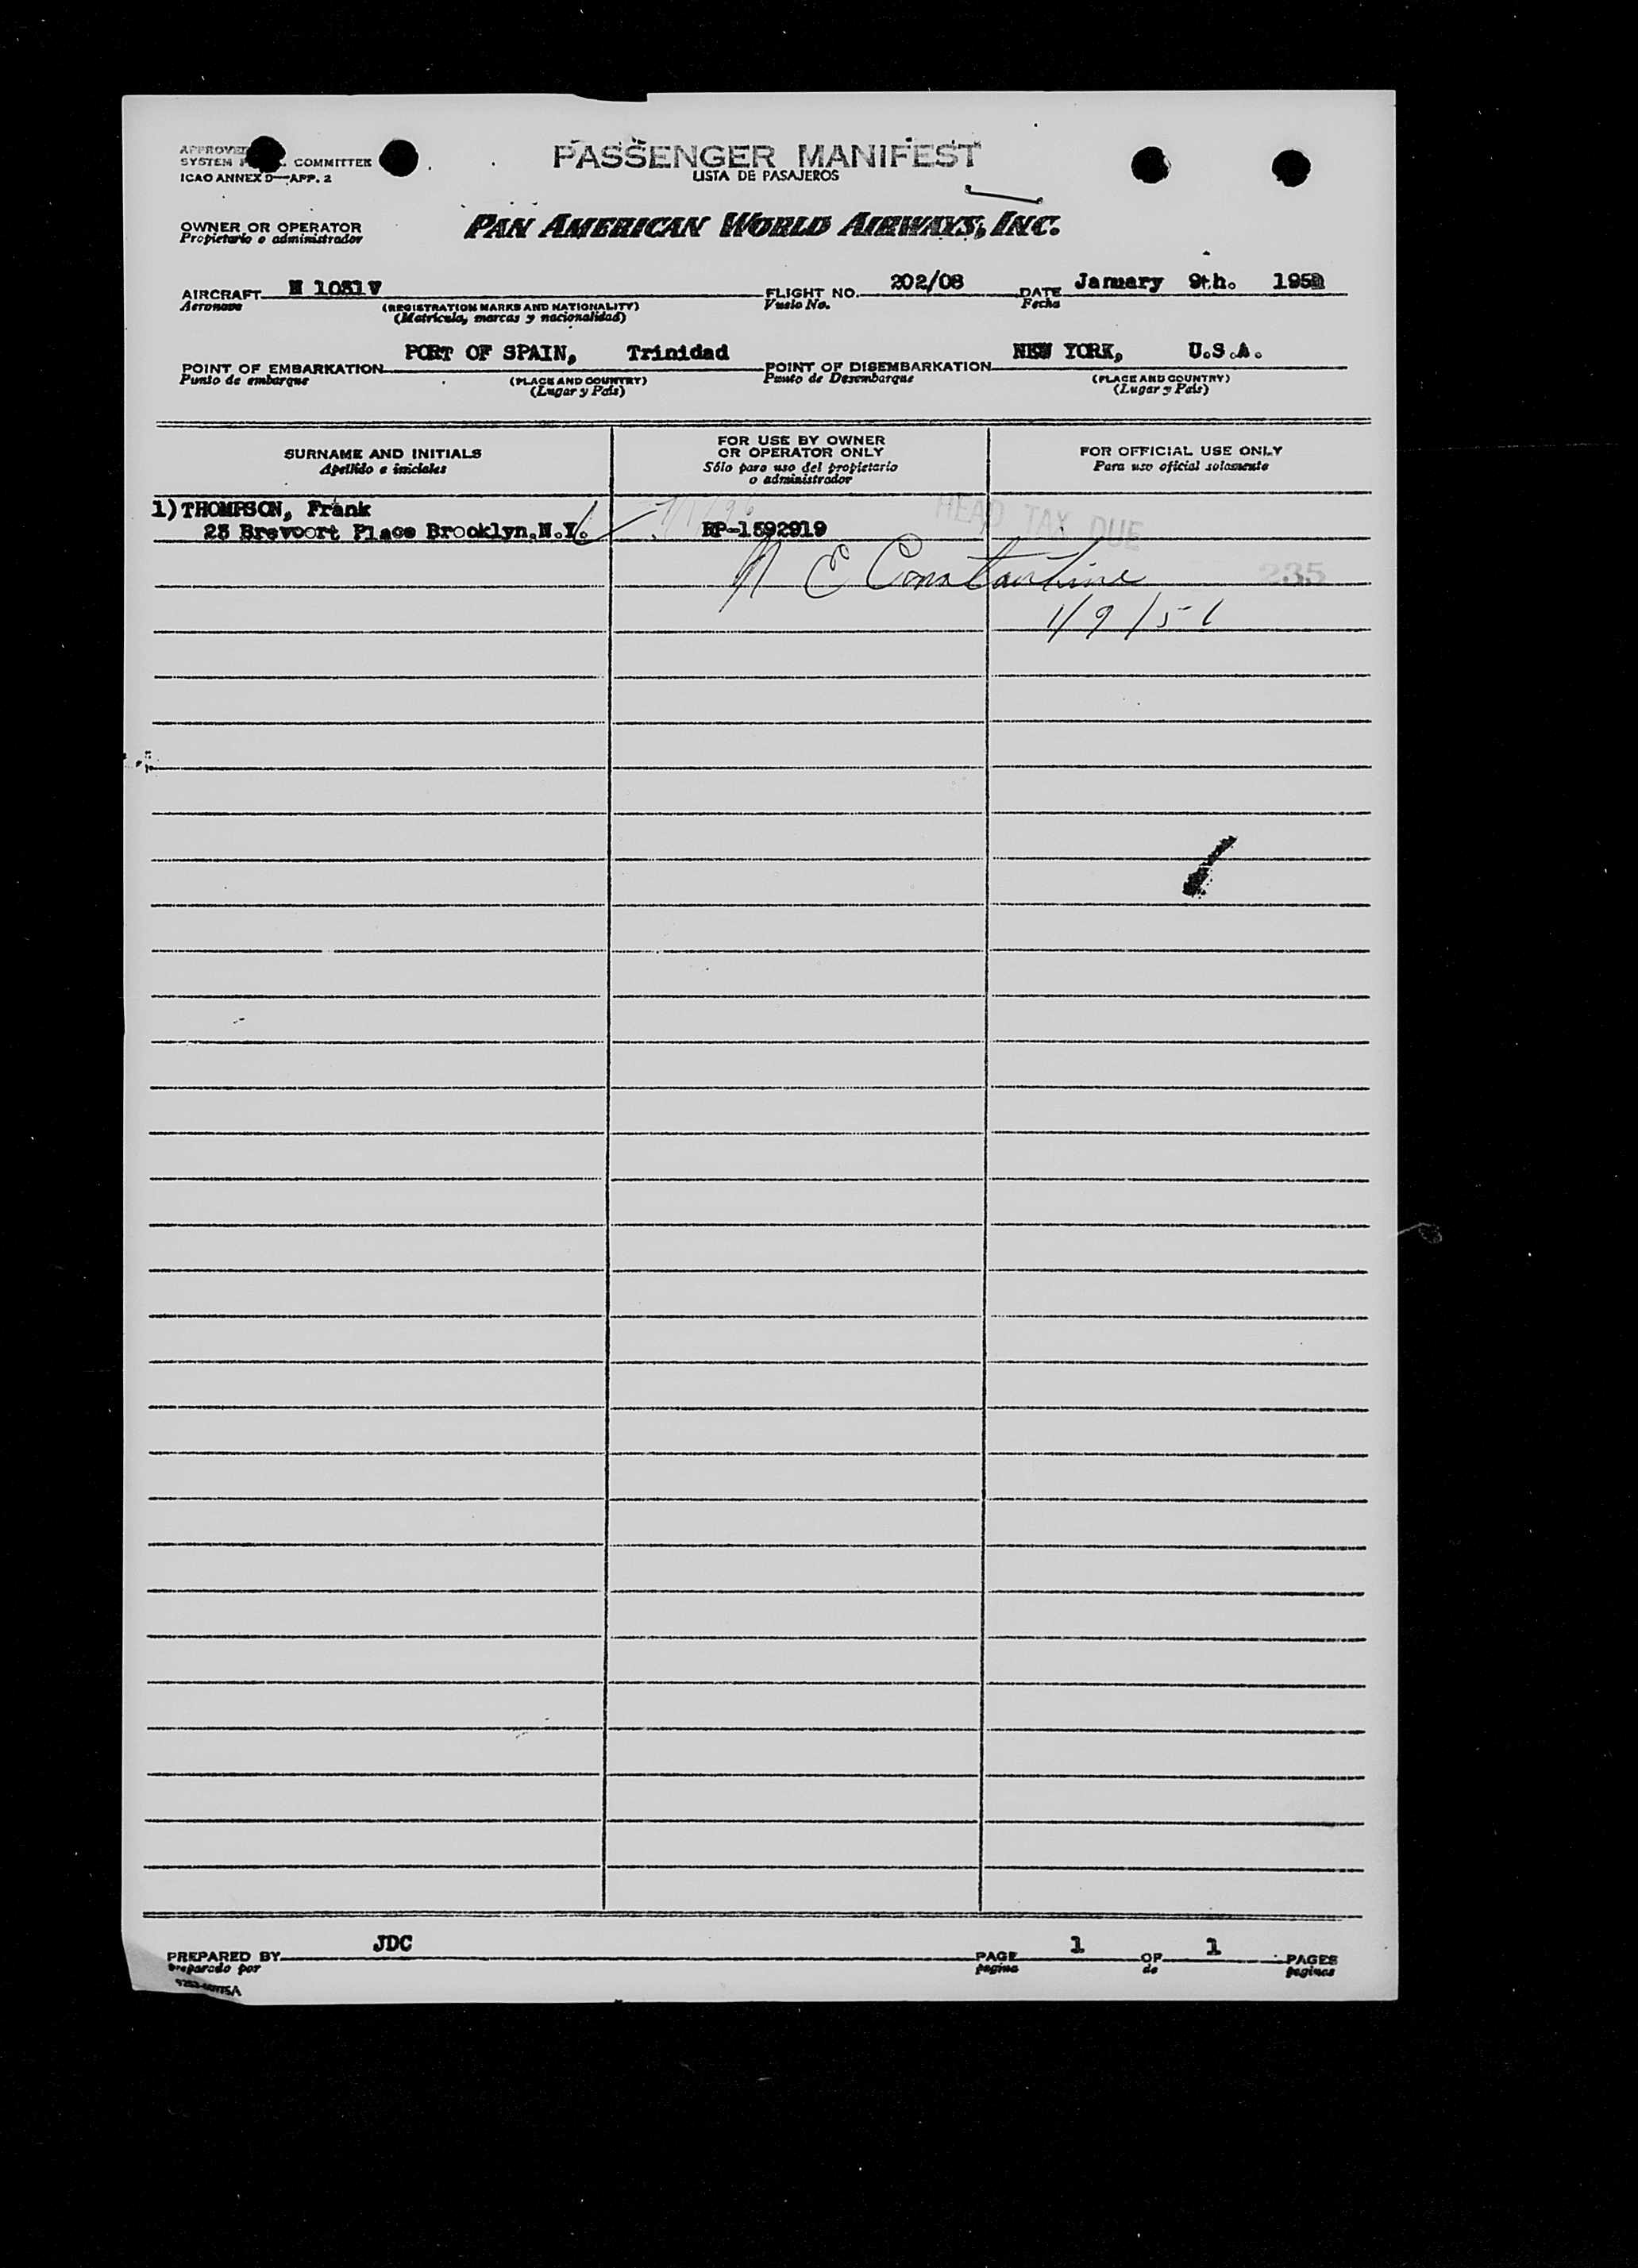 PASSENGER MANIFEST
LISTA DE PASAJEROS
APPROVED
SYSTEM COMMITTEE
ICAO ANNEX 9—APP. 2
OWNER OR OPERATOR
Propietario o administrador
PAN AMERICAN WORLD AIRWAYS, INC.
AIRCRAFT N 1031V FLIGHT NO. 202/08 DATE January 9th.
Aeronave (REGISTRATION MARKS AND NATIONALITY) Vuelo No. Fecha
(Matrícula, marcas y nacionalidad)
POINT OF EMBARKATION PORT OF SPAIN, Trinidad POINT OF DISEMBARKATION NEW YORK, U.S.A.
Punto de embarque (PLACE AND COUNTRY) Punto de Desembarque (PLACE AND COUNTRY)
(Lugar y País) (Lugar y País)
SURNAME AND INITIALS
Apellido e iniciales
FOR USE BY OWNER
OR OPERATOR ONLY
Sólo para uso del propietario
o administrador
FOR OFFICIAL USE ONLY
Para uso oficial solamente
1) THOMPSON, Frank
23 Brevoort Place Brooklyn.N.Y. RP-1592919
HEAD TAX DUE
N E Constantine
235
1/9/51
PREPARED BY JDC PAGE 1 OF 1 PAGES
Preparado por pagina de paginas